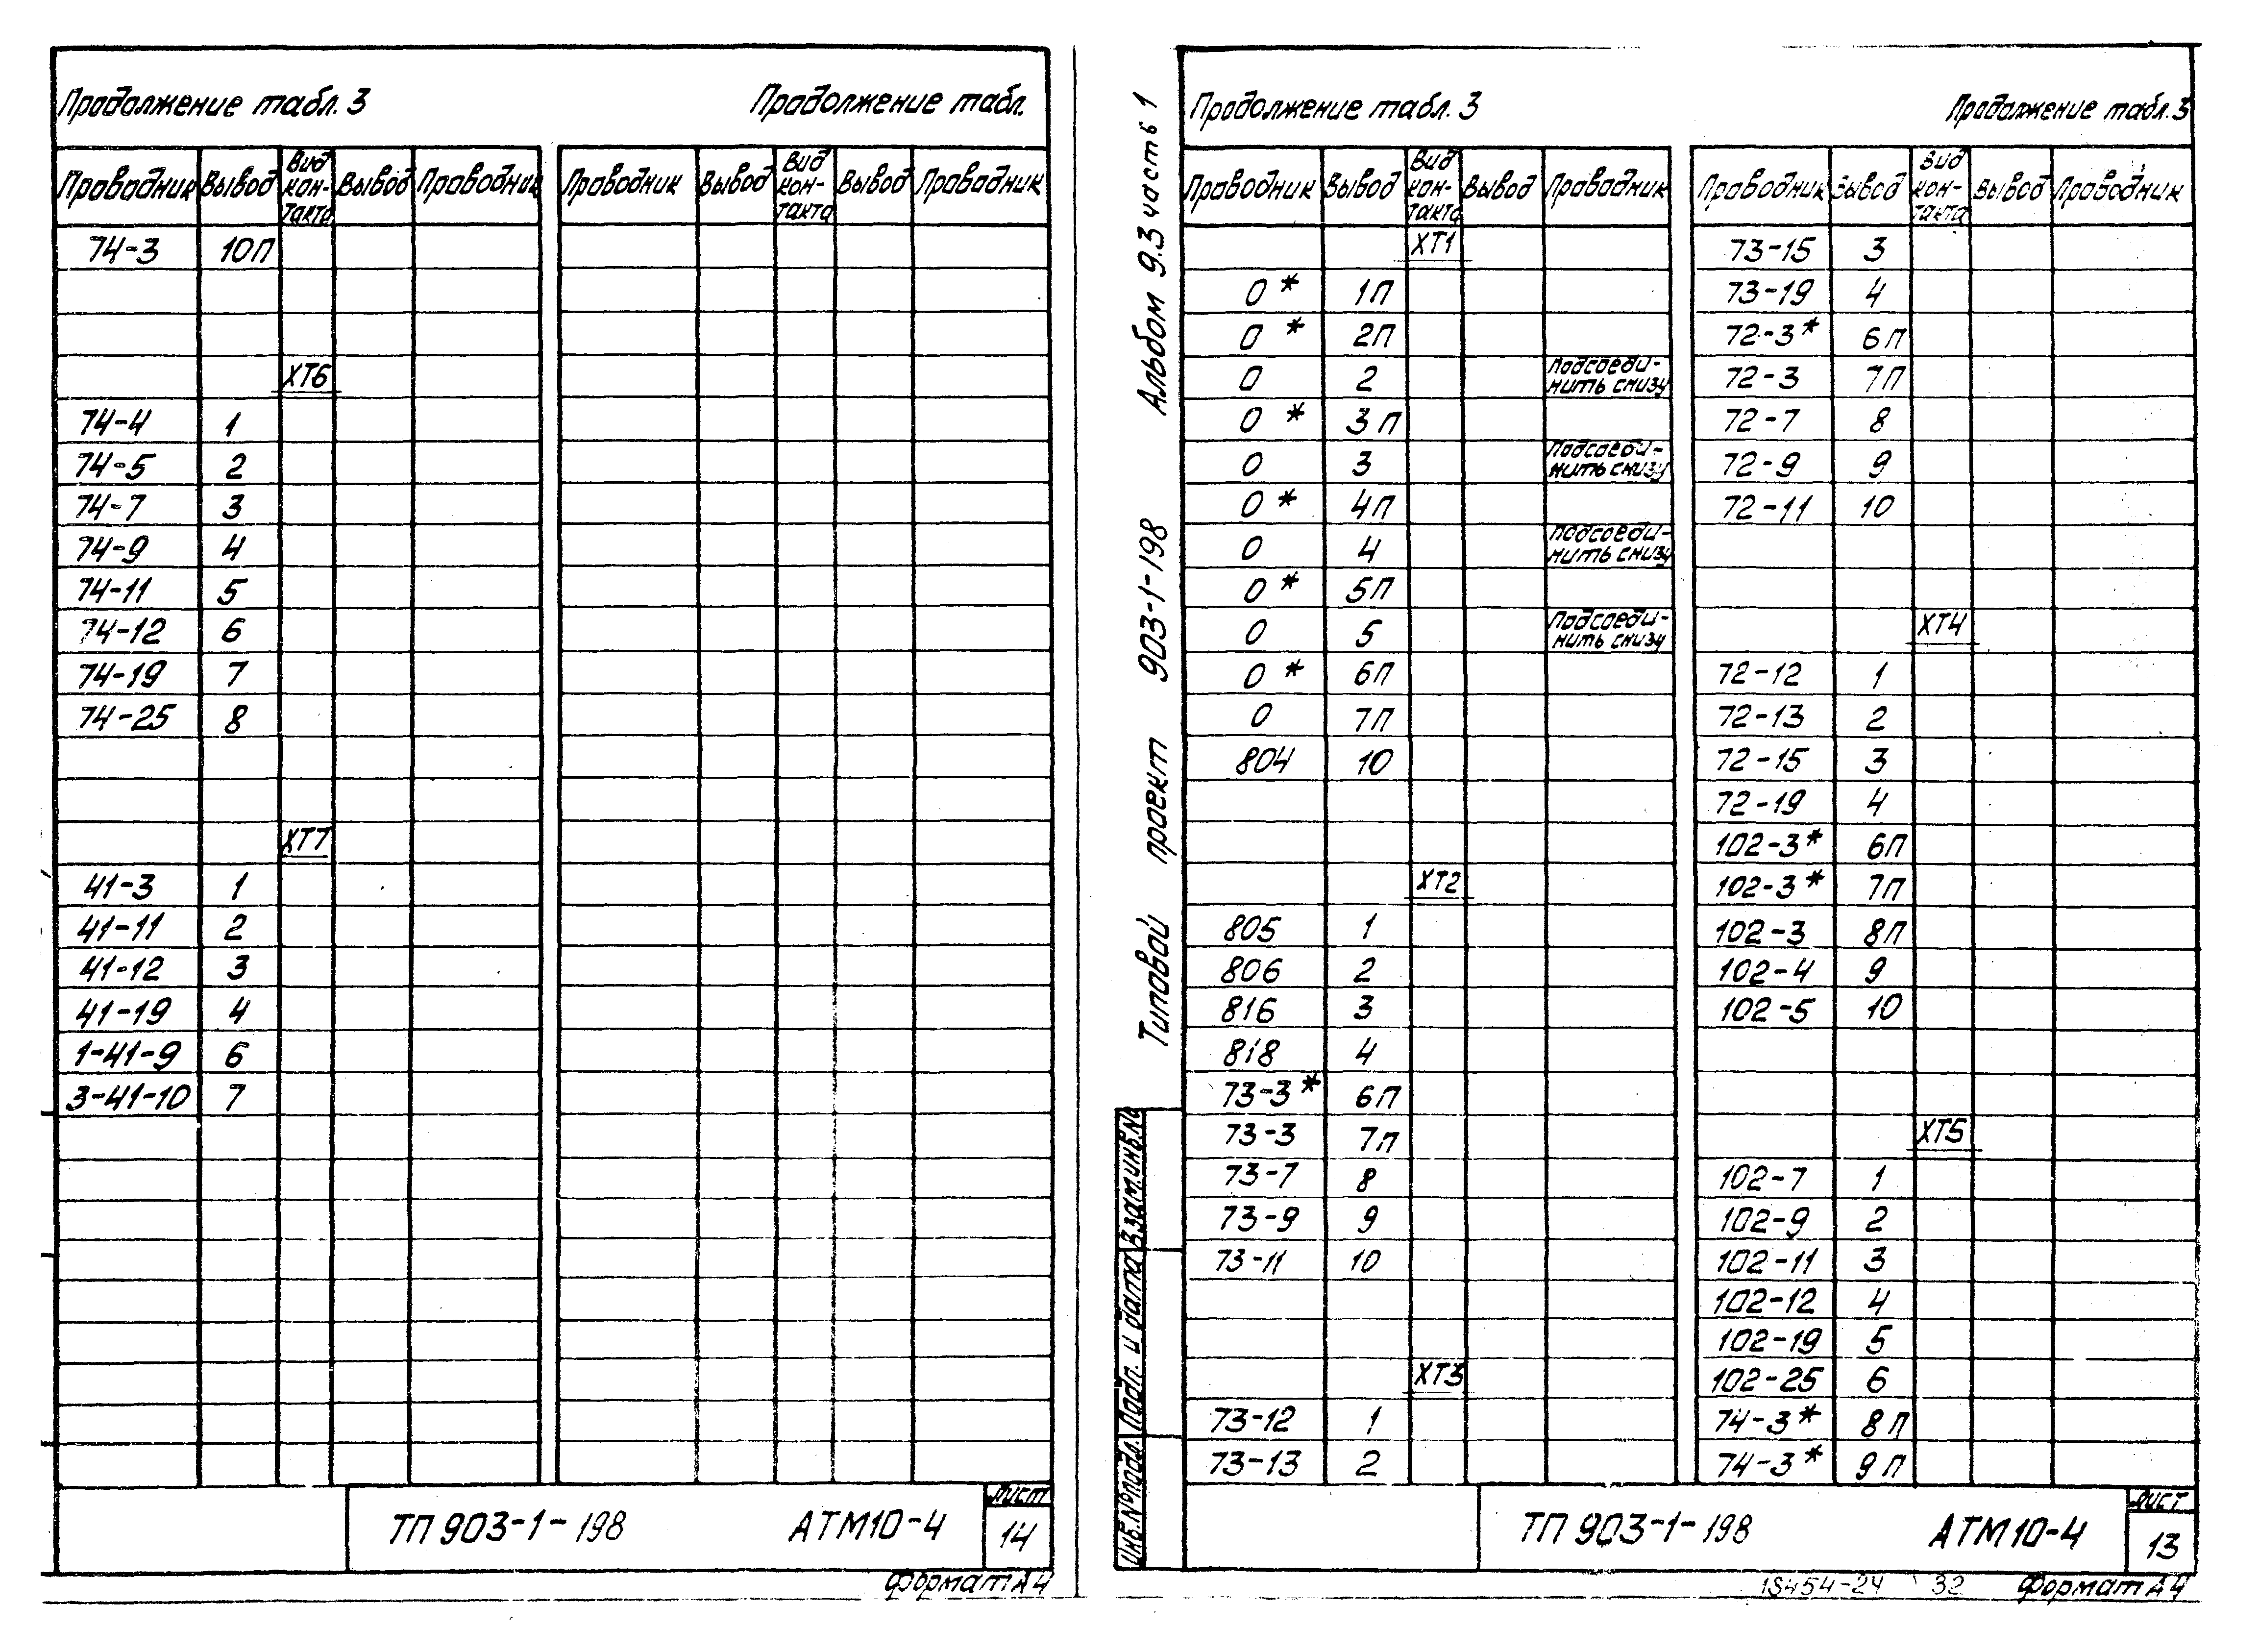 Продолжение табл. 3
Продолжение табл.
Проводник Вывод Вид кон-такта Вывод Проводник Проводник Вывод Вид кон-такта Вывод Проводник
74-3 10П
ХТ6
74-4 1
74-5 2
74-7 3
74-9 4
74-11 5
74-12 6
74-19 7
74-25 8
ХТ7
41-3 1
41-11 2
41-12 3
41-19 4
1-41-9 6
3-41-10 7
ТП 903-1-198 АТМ10-4
Лист
14
Формат А4
Типовой проект 903-1-198 Альбом 9.3 часть 1
Продолжение табл. 3
Проводник Вывод Вид кон-такта Вывод Проводник
ХТ1
0* 1П
0* 2П
0 2 Подсоеди-
нить снизу
0* 3П
0 3 Подсоеди-
нить снизу
0* 4П
0 4 Подсоеди-
нить снизу
0* 5П
0 5 Подсоеди-
нить снизу
0* 6П
0 7П
804 10
ХТ2
805 1
806 2
816 3
818 4
73-3* 6П
73-3 7П
73-7 8
73-9 9
73-11 10
ХТ3
73-12 1
73-13 2
Продолжение табл. 3
Проводник Вывод Вид кон-такта Вывод Проводник
73-15 3
73-19 4
72-3* 6П
72-3 7П
72-7 8
72-9 9
72-11 10
ХТ4
72-12 1
72-13 2
72-15 3
72-19 4
102-3* 6П
102-3* 7П
102-3 8П
102-4 9
102-5 10
ХТ5
102-7 1
102-9 2
102-11 3
102-12 4
102-19 5
102-25 6
74-3* 8П
74-3* 9П
Инв.№подл. Подп. и дата Взам.инв.№
ТП 903-1-198 АТМ10-4
Лист
13
18454-24 32 Формат А4